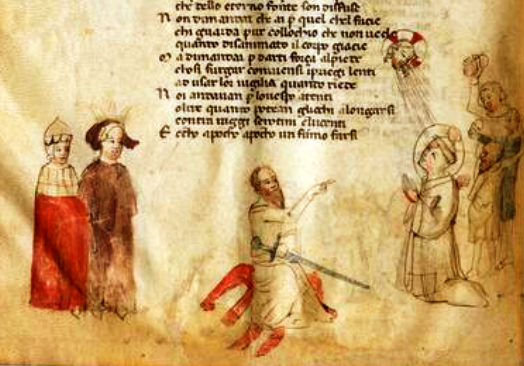 che dello eterno fonte son diffuse
N on diman dai che ai p quel chel facie
chi guarda pur collochio che non vede
quanto disanimato il corpo giacie
M a dimandai p darti força alpiete
chosi furgar conviensi ipriegi lenti
ad usar lor uigilia quanto riete
N oi andauan p louespro atenti
oltre quanto potean gliochi alongarsi
contra iraggi serotini elucenti
E echo apocho apocho un fumo farsi